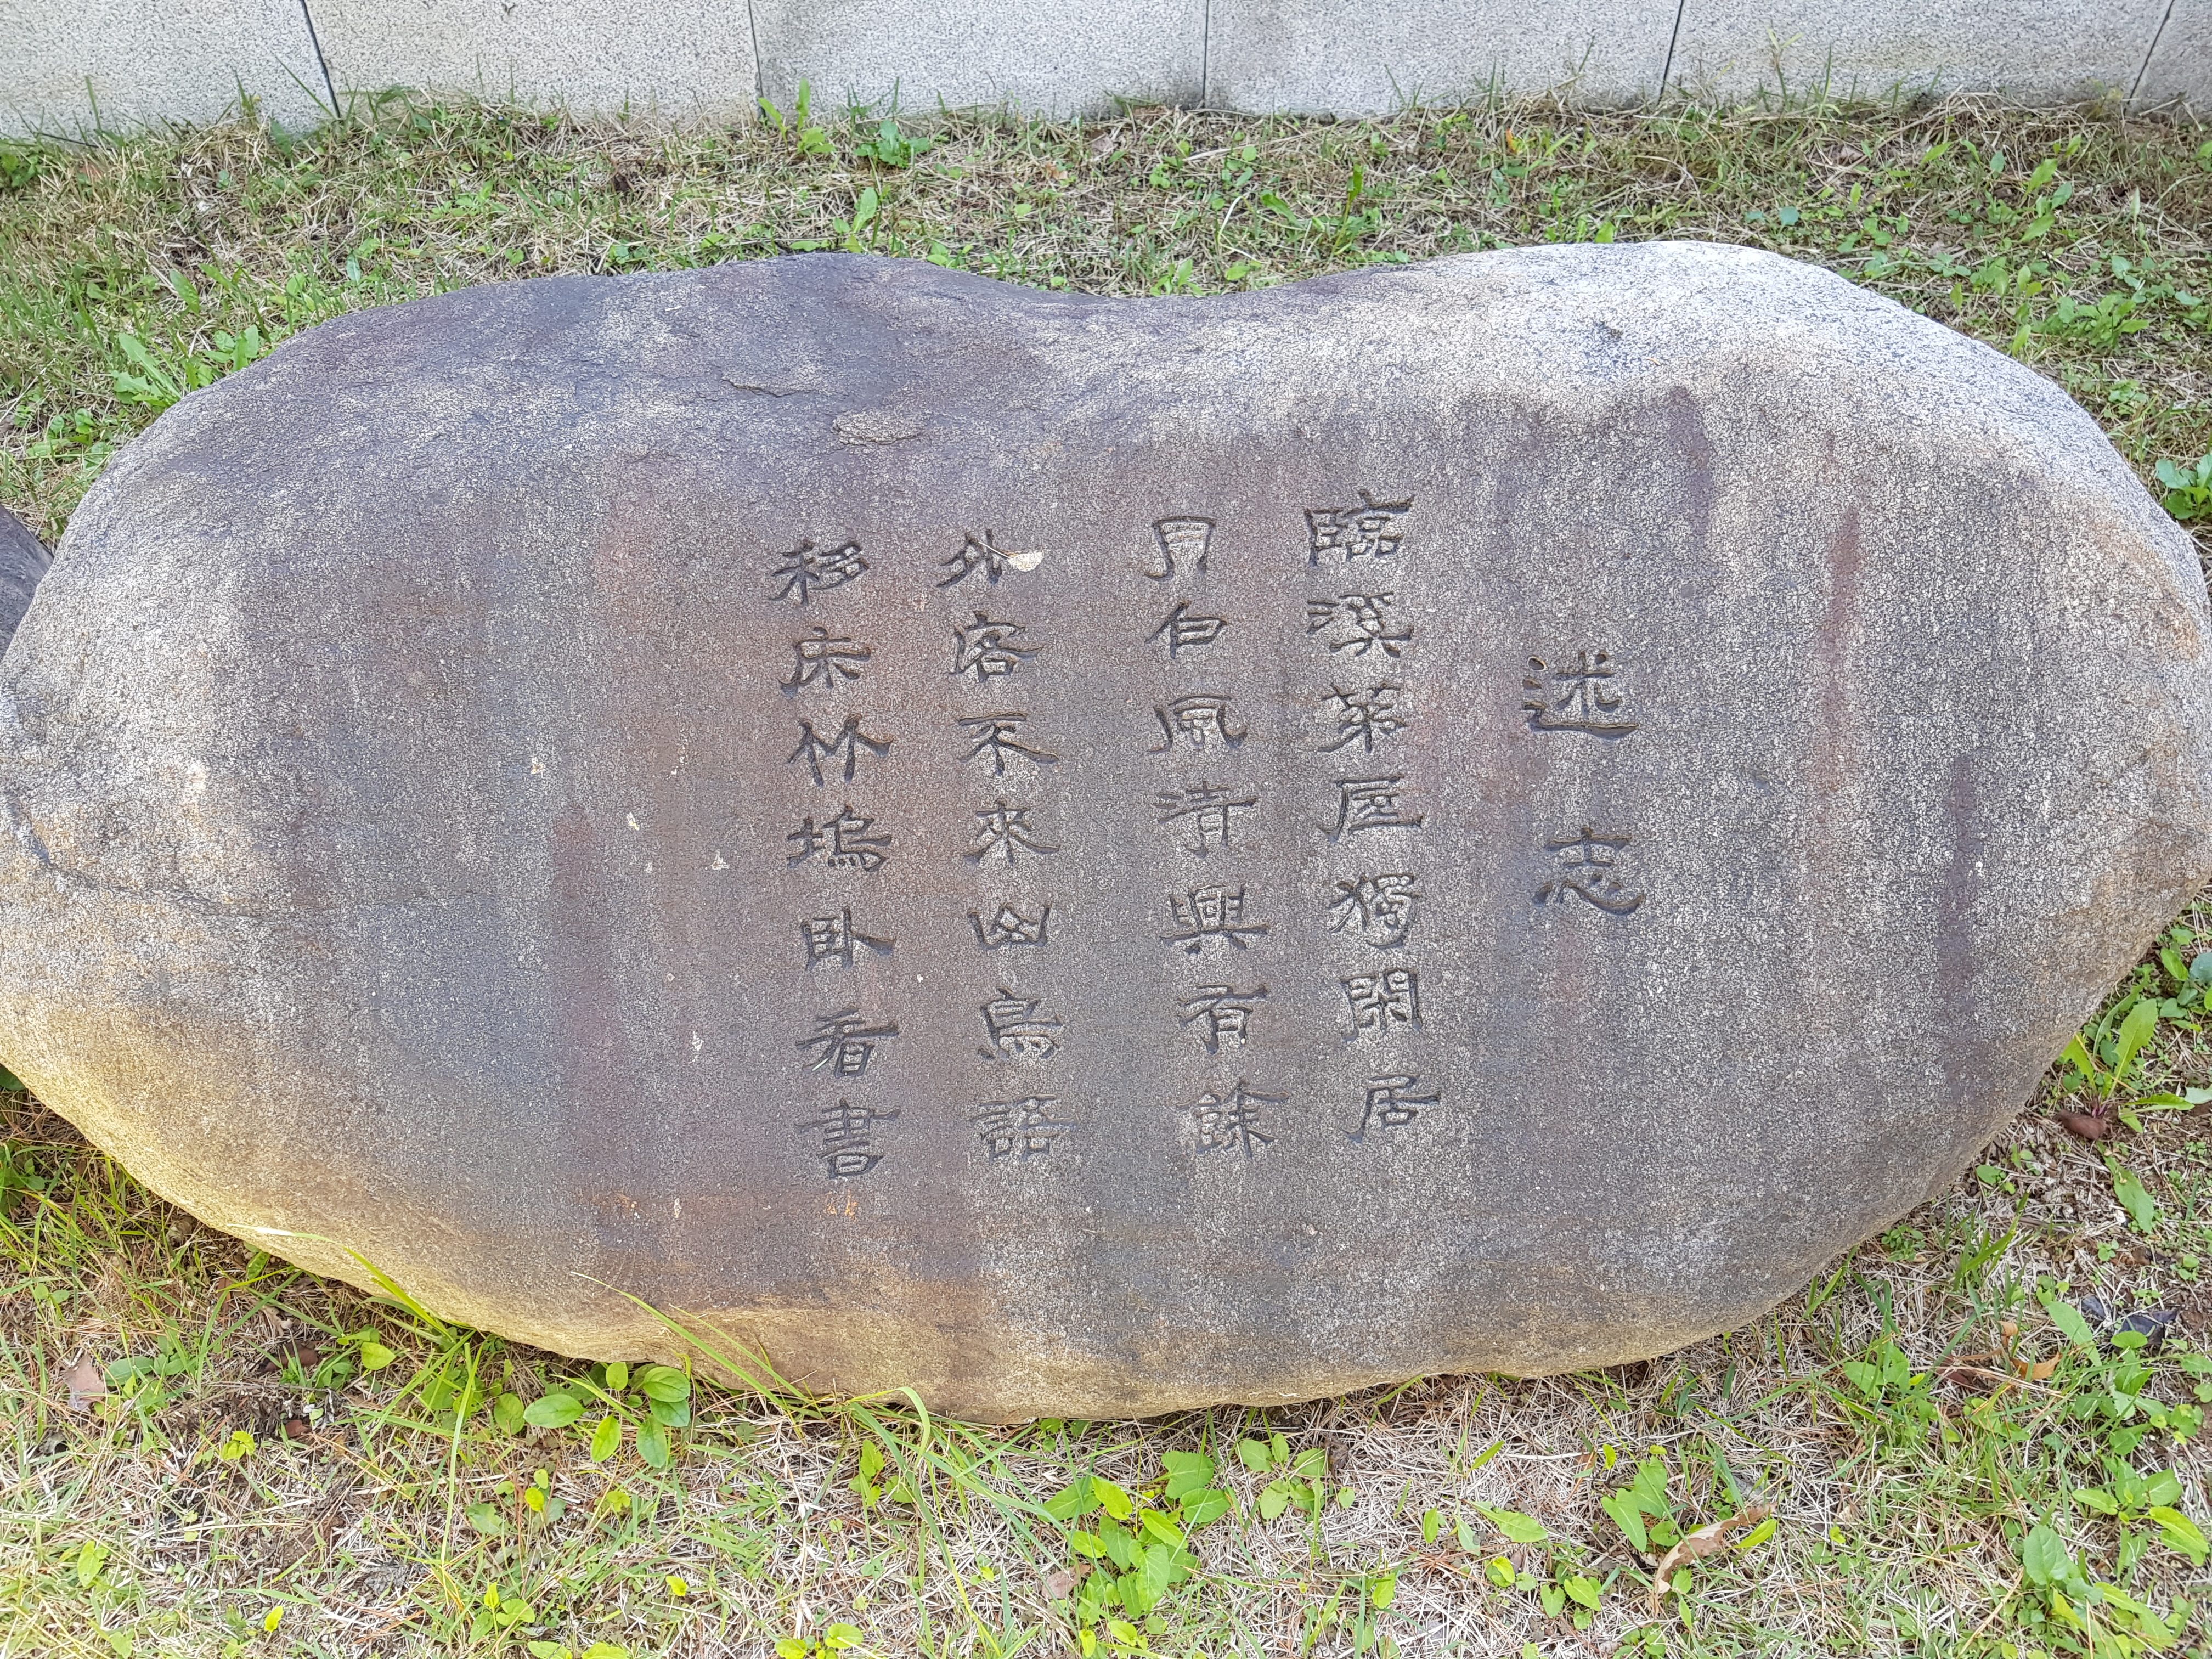 述志
臨溪茅屋獨閑居
月白風淸興有餘
外客不來山鳥語
移床竹塢臥看書